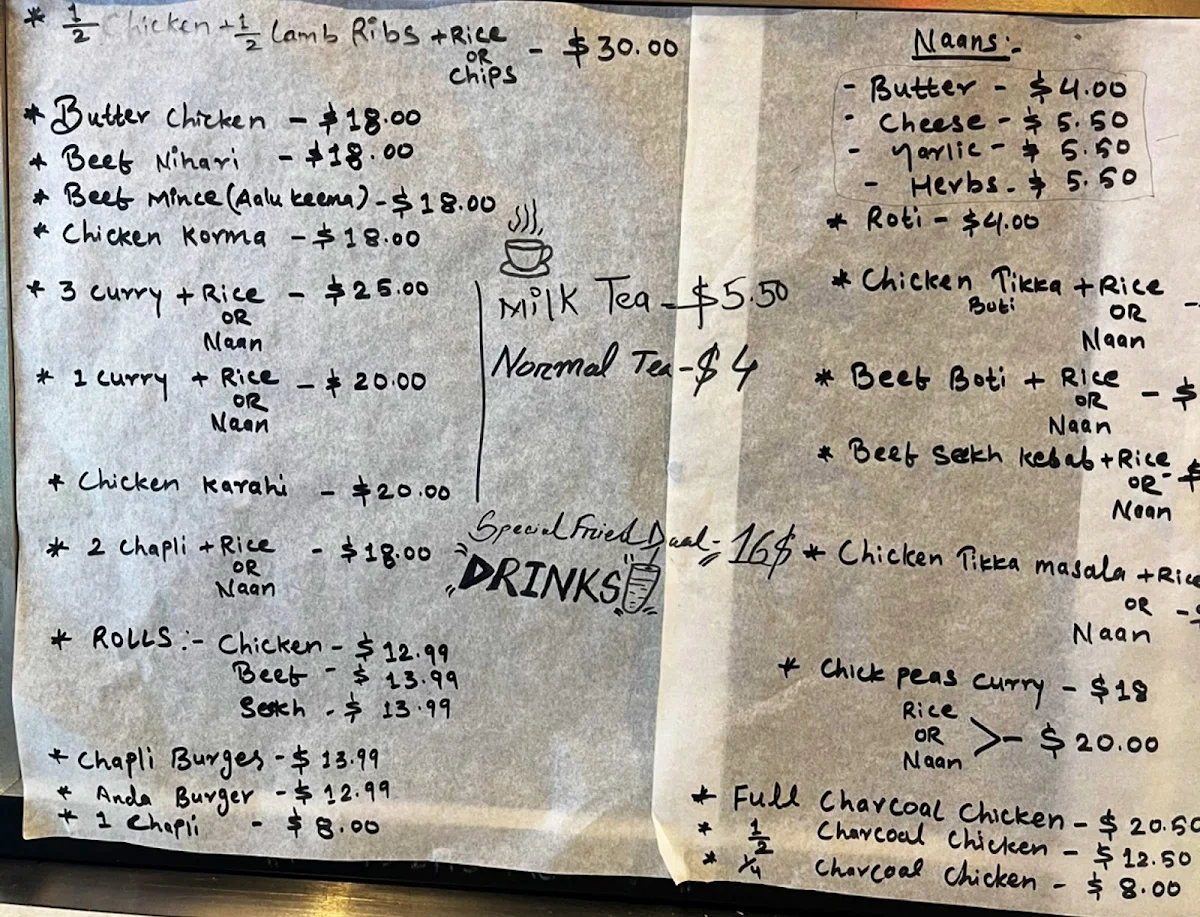 * 1/2 Chicken + 1/2 Lamb Ribs + Rice - $30.00
OR
Chips
* Butter Chicken - $18.00
* Beef Nihari - $18.00
* Beef Mince (Aalu keema) - $18.00
* Chicken Korma - $18.00
* 3 curry + Rice - $25.00
OR
Naan
* 1 curry + Rice - $20.00
OR
Naan
* Chicken Karahi - $20.00
* 2 Chapli + Rice - $18.00
OR
Naan
* ROLLS:- Chicken - $12.99
Beef - $13.99
Seekh - $13.99
* Chapli Burger - $13.99
* Anda Burger - $12.99
* 1 Chapli - $8.00
Milk Tea - $5.50
Normal Tea - $4
Special Fried Daal - 16$
DRINKS
Naans:-
- Butter - $4.00
- Cheese - $5.50
- Garlic - $5.50
- Herbs - $5.50
* Roti - $4.00
* Chicken Tikka + Rice -
Boti OR
Naan
* Beef Boti + Rice - $
OR
Naan
* Beef Seekh Kebab + Rice - $
OR
Naan
* Chicken Tikka masala + Rice
OR -
Naan
* Chick peas curry - $18
Rice
OR - $20.00
Naan
* Full Charcoal Chicken - $20.50
* 1/2 Charcoal Chicken - $12.50
* 1/4 Charcoal Chicken - $8.00